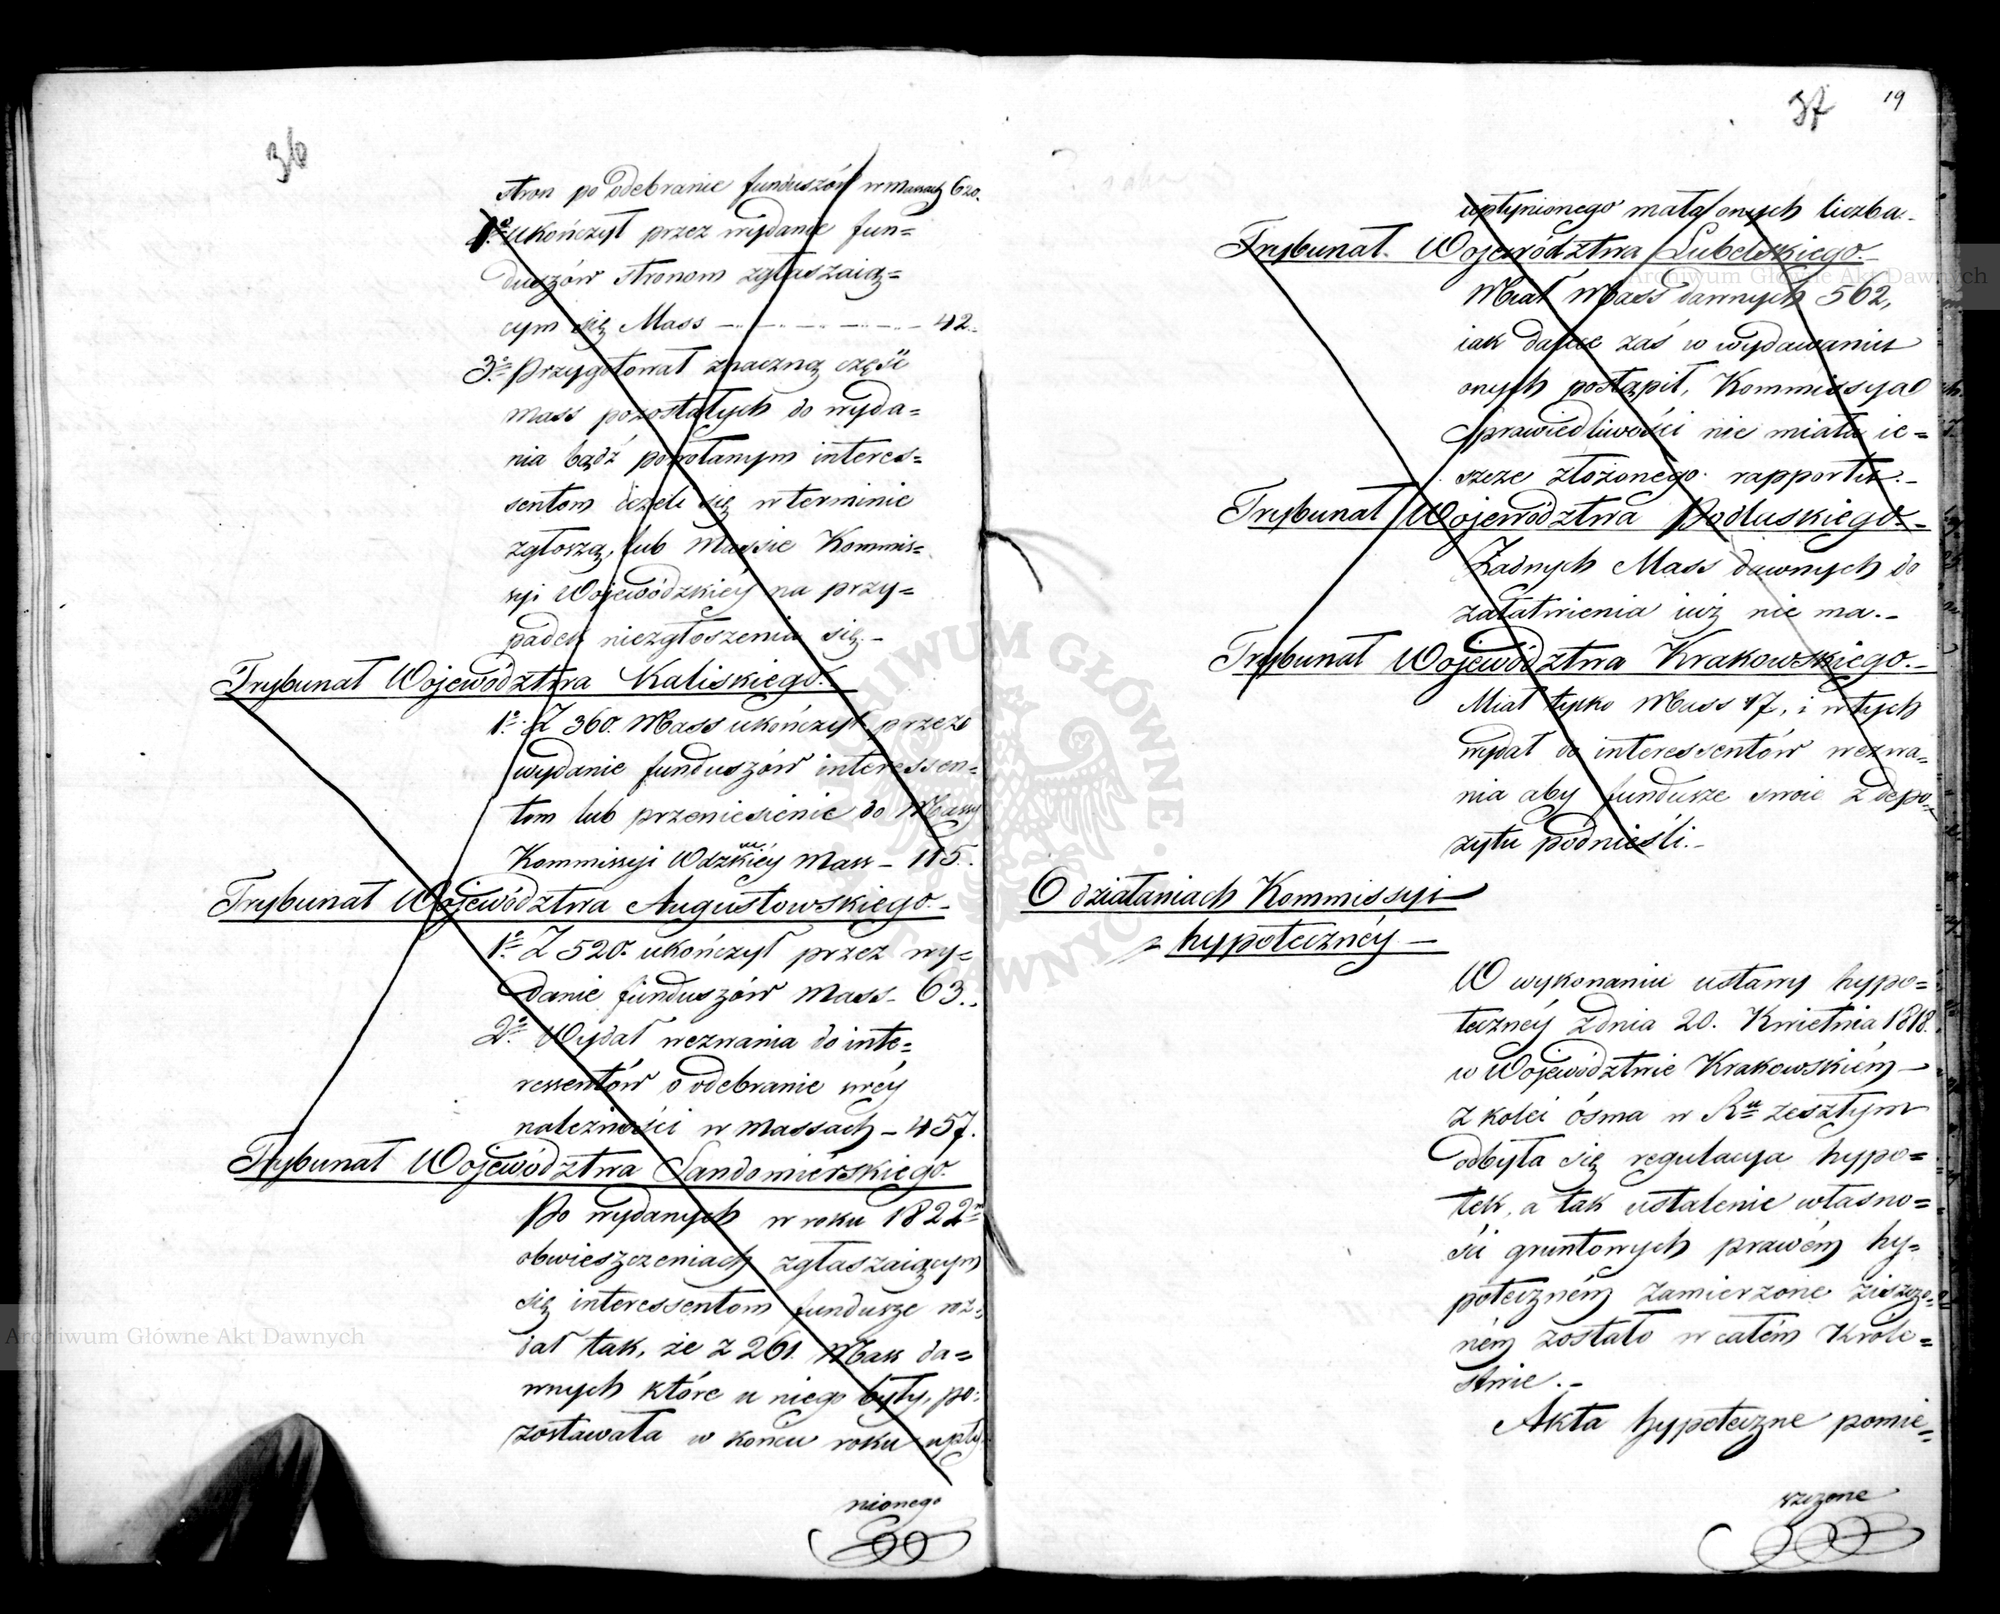 36
stron po odebranie funduszów w massach 620.
2o. ukończył przez wydanie fun=
duszów stronom zgłaszaią=
cym się Mass — — — — 42.
3o. Przygotował znaczną część
mass pozostałych do wyda=
nia bądź powołanym interes=
sentom ieżeli się w terminie
zgłoszą, lub Massie Kommis=
syi Wojewódzkiéy na przy=
padek niezgłoszenia się.—
Trybunał Województwa Kaliskiego.
1o. Z 360. Mass ukończył przez
wydanie funduszów interessen=
tom lub przeniesienie do Massy
Kommissyi Wdzkiéy Mass — 115.
Trybunał Województwa Augustowskiego.—
1o. Z 520. ukończył przez wy=
danie funduszów Mass — 63.
2o. Wydał wezwania do inte=
ressentów o odebranie swéy
należności w Massach — 457.
Trybunał Województwa Sandomierskiego.
Po wydanych w roku 1822m
obwieszczeniach zgłaszaiącym
się interessentom fundusze roz=
dał tak, że z 261. Mass da=
wnych które u niego były, po=
zostawała w końcu roku upły=
nionego
37
19
upłynionego mała onych liczba.
Trybunał Województwa Lubelskiego.—
Miał Mass dawnych 562,
iak daléce zaś w wydawaniu
onych postąpił, Kommissya
Sprawiedliwości nie miała ie=
szcze złożonego rapportu.—
Trybunał Województwa Podlaskiego.—
Żadnych Mass dawnych do
załatwienia iuż nie ma.—
Trybunał Województwa Krakowskiego.—
Miał tylko Mass 17, i w tych
wydał do interessentów wezwa=
nia aby fundusze swoie z depo=
zytu podnieśli.—
O działaniach Kommissyi
hypoteczney.—
W wykonaniu ustawy hypo=
tecznéy z dnia 20. Kwietnia 1818.
w Województwie Krakowskiém —
z kolei ósma w Ru zeszłym
odbyła się regulacya hypo=
tek, a tak ustalenie własno=
ści gruntowych prawém hy=
poteczném zamierzone ziszczo=
ném zostało w całém Króle=
stwie.—
Akta hypoteczne pomie=
szczone
Archiwum Główne Akt Dawnych
Archiwum Główne Akt Dawnych
ARCHIWUM GŁÓWNE AKT DAWNYCH